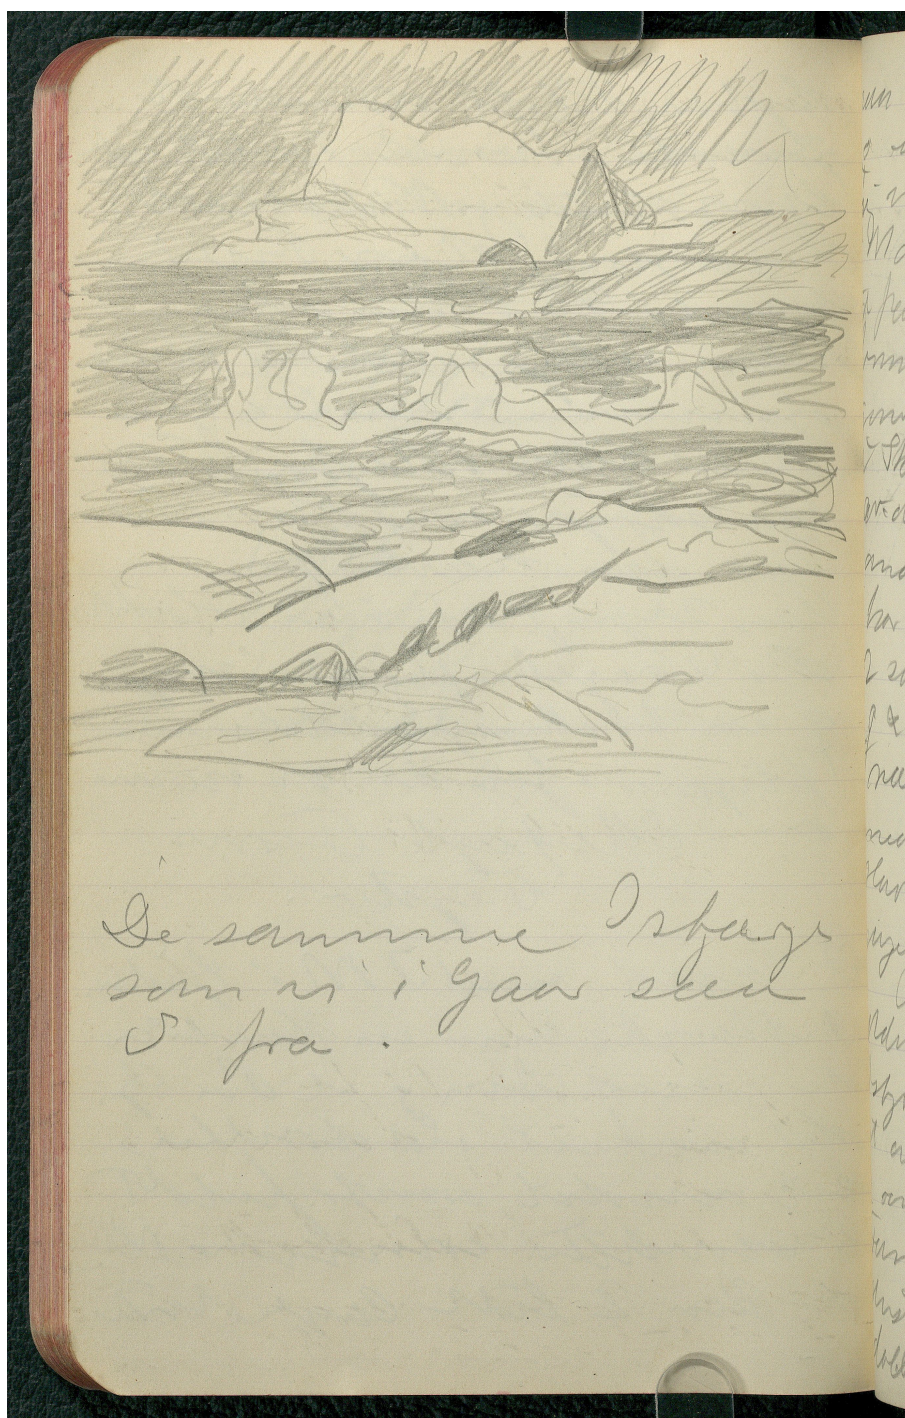 De samme Isbjærge
som vi i Gaar saae
S fra.